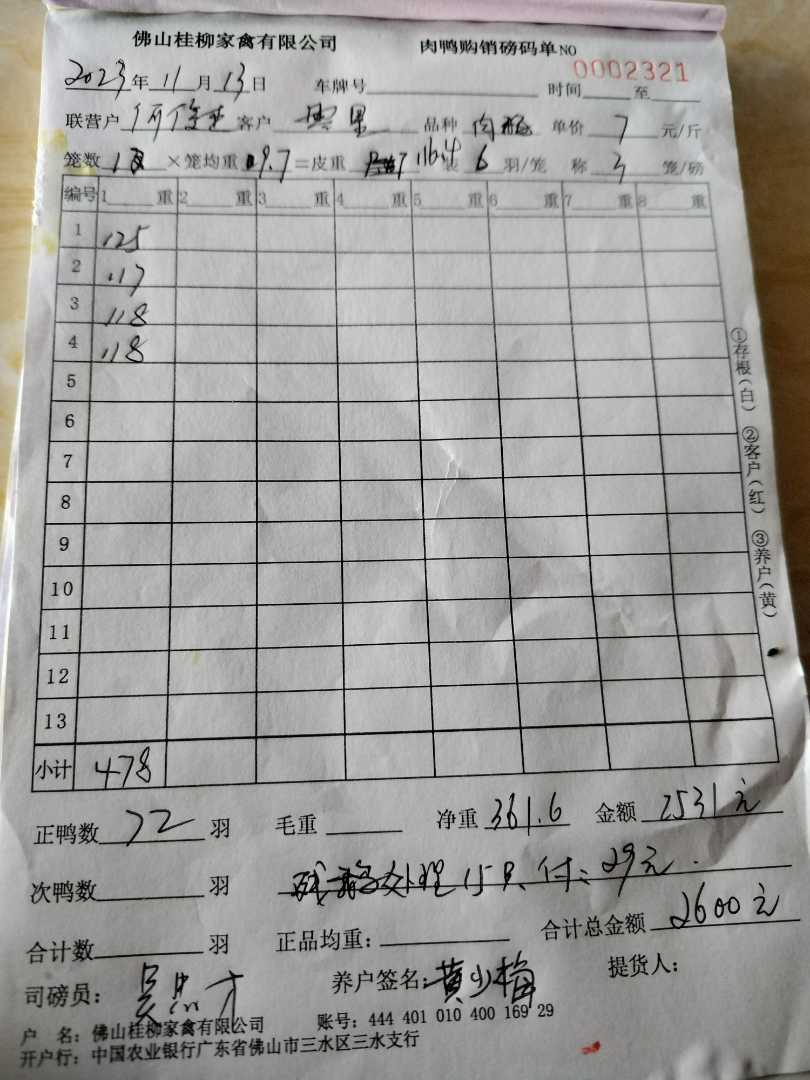 佛山桂柳家禽有限公司 肉鸭购销磅码单 NO 0002321
2023年11月13日 车牌号 时间 至
联营户 客户 品种 肉鸭 单价 7 元/斤
笼数 12 ×笼均重 9.7 =皮重 116.4 装 6 羽/笼 称 3 笼/磅
编号 1 重 2 重 3 重 4 重 5 重 6 重 7 重 8 重
1 125
2 117
3 118
4 118
5
6
7
8
9
10
11
12
13
小计 478
①存根(白) ②客户(红) ③养户(黄)
正鸭数 72 羽 毛重 净重 361.6 金额 2531元
次鸭数 羽 残鸭处理15只付:29元.
合计数 羽 正品均重: 合计总金额 2600元
司磅员: 养户签名: 黄少梅 提货人:
户 名: 佛山桂柳家禽有限公司 账号: 444 401 010 400 169 29
开户行: 中国农业银行广东省佛山市三水区三水支行